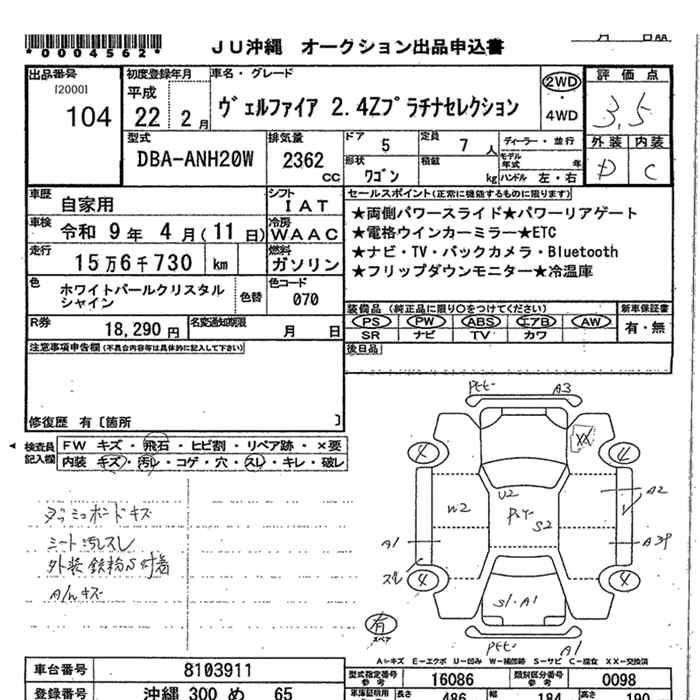 *0004562*
JU沖縄 オークション出品申込書
月 日
出品番号
[2000]
104
初度登録年月
平成
22 2月
車名・グレード
ヴェルファイア 2.4Zプラチナセレクション
2WD
・
4WD
評価点
3.5
外装 内装
D C
型式
DBA-ANH20W
排気量
2362
CC
ドア 5
定員 7人
形状
ワゴン
積載
kg
ディーラー・並行
モデル年式 年
ハンドル 左・右
車歴
自家用
シフト
IAT
車検 令和 9年 4月(11日)
冷房
WAAC
走行
15万6千730 km
燃料
ガソリン
色
ホワイトパールクリスタル
シャイン
色替
色コード
070
R券
18,290円
名変通知期限
月 日
セールスポイント(正常に機能するものに限ります)
★両側パワースライド★パワーリアゲート
★電格ウインカーミラー★ETC
★ナビ・TV・バックカメラ・Bluetooth
★フリップダウンモニター★冷温庫
装備品 (純正品に限り○をつけてください)
PS PW ABS エアB AW
SR ナビ TV カワ
新車保証書
有・無
後日品
注意事項申告欄(不具合内容等は具体的に記入して下さい)
修復歴 有[箇所 ]
検査員
記入欄
FW キズ・飛石・ヒビ割・リペア跡・×要
内装 キズ・汚レ・コゲ・穴・スレ・キレ・破レ
ダッシュボードキズ
シート汚レスレ
外装 鉄粉S付着
A/Wキズ
A3
XX
4
4
W2
U2
S2
A2
A1
スレ
4
4
S1・A1
有
スペア
A1
A=キズ E=エクボ U=凹み W=補修跡 S=サビ C=腐食 XX=交換済
車台番号
8103911
登録番号
沖縄 300 め 65
型式指定番号
参考
16086
類別区分番号
参考
0098
長さ 486 幅 184 高さ 190